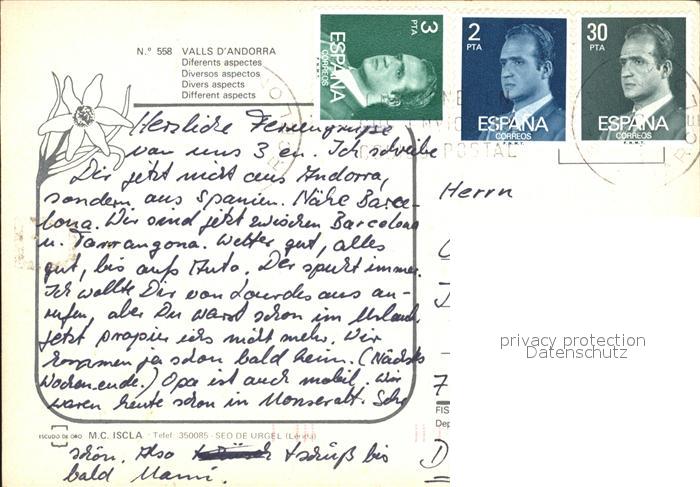 N.º 558 VALLS D'ANDORRA
Diferents aspectes
Diversos aspectos
Divers aspects
Different aspects
3 PTA
ESPAÑA
CORREOS
F.N.M.T.
2 PTA
ESPAÑA
CORREOS
F.N.M.T.
30 PTA
ESPAÑA
CORREOS
F.N.M.T.
POSTAL
Herzliche Feriengrüsse
von uns 3 en. Ich schreibe
Dir jetzt nicht aus Andorra,
sondern aus Spanien. Nähe Barce-
lona. Wir sind jetzt zwischen Barcelona
u. Tarrangona. Wetter gut, alles
gut, bis aufs Auto. Der spukt immer.
Ich wollte Dir von Lourdes aus an-
rufen, aber Du warst schon im Urlaub
jetzt probier ichs nicht mehr. Wir
kommen ja schon bald heim. (Nächstes
Wochenende.) Opa ist auch mobil. Wir
waren heute schon in Monseratt. Sehr
schön. Also tschüß bis
bald Mami.
Herrn
privacy protection
Datenschutz
FIS
Dep
D
ESCUDO DE ORO M.C. ISCLA - Telef. 350085 - SEO DE URGEL (Lérida)